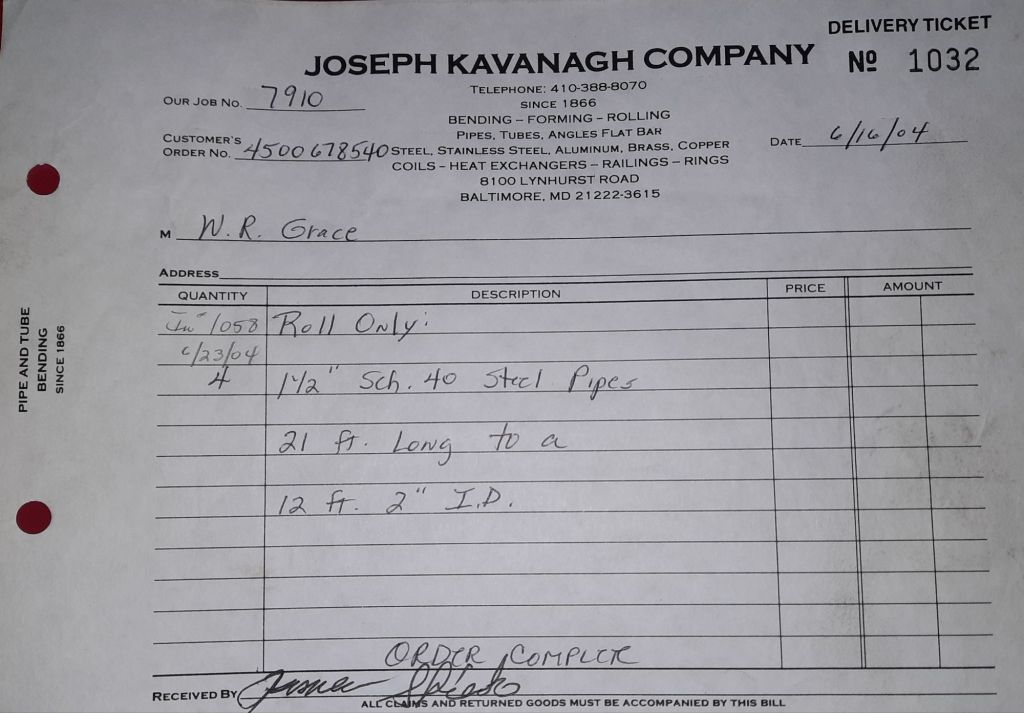 DELIVERY TICKET
JOSEPH KAVANAGH COMPANY
Nº 1032
TELEPHONE: 410-388-8070
SINCE 1866
OUR JOB NO. 7910
BENDING – FORMING – ROLLING
PIPES, TUBES, ANGLES FLAT BAR
CUSTOMER'S
ORDER NO. 4500678540
STEEL, STAINLESS STEEL, ALUMINUM, BRASS, COPPER
DATE 6/16/04
COILS – HEAT EXCHANGERS – RAILINGS – RINGS
8100 LYNHURST ROAD
BALTIMORE, MD 21222-3615
M W. R. Grace
ADDRESS
QUANTITY DESCRIPTION PRICE AMOUNT
1058 Roll Only:
6/23/04
4 1 1/2" Sch. 40 Steel Pipes
21 ft. Long to a
12 ft. 2" I.D.
ORDER COMPLETE
RECEIVED BY
ALL CLAIMS AND RETURNED GOODS MUST BE ACCOMPANIED BY THIS BILL
PIPE AND TUBE
BENDING
SINCE 1866